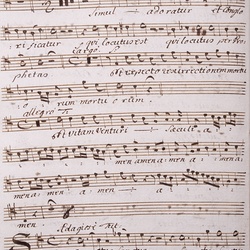 Simul adoratur et Conglo
rificatur qui locutus est qui locutus per Pro
Largo
phetas et expecto resurrectionem mortu
o rum mortu o rum.
allegro
et vitam venturi Sæculi a
men amen amen a
men a men a men a
men. Adagio